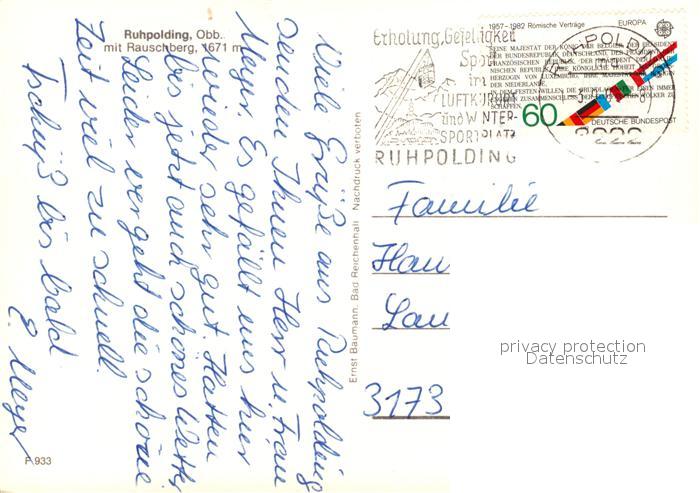 Ruhpolding, Obb.
mit Rauschberg, 1671 m
Viele Grüße aus Ruhpolding
senden Ihnen Herr u. Frau
Meyer Es gefällt uns hier
wieder sehr gut. Hatten
bis jetzt auch schönes Wetter
Leider vergeht die schöne
Zeit viel zu schnell
Tschüß bis bald
E. Meyer
F 933
Ernst Baumann, Bad Reichenhall Nachdruck verboten
Erholung, Geselligkeit
Sport
im
LUFTKURORT
und WINTER-
SPORTPLATZ
RUHPOLDING
1957-1982 Römische Verträge EUROPA
SEINE MAJESTÄT DER KÖNIG DER BELGIER, DER PRÄSIDENT
DER BUNDESREPUBLIK DEUTSCHLAND, DER PRÄSIDENT DER
FRANZÖSISCHEN REPUBLIK, DER PRÄSIDENT DER ITALIE-
NISCHEN REPUBLIK, IHRE KÖNIGLICHE HOHEIT DIE GROSS-
HERZOGIN VON LUXEMBURG, IHRE MAJESTÄT DIE KÖNIGIN
DER NIEDERLANDE,
IN DEM FESTEN WILLEN, DIE GRUNDLAGEN FÜR EINEN IMMER
ENGEREN ZUSAMMENSCHLUSS DER EUROPÄISCHEN VÖLKER ZU
SCHAFFEN
60
DEUTSCHE BUNDESPOST
Familie
Hau
Lau
3173
privacy protection
Datenschutz